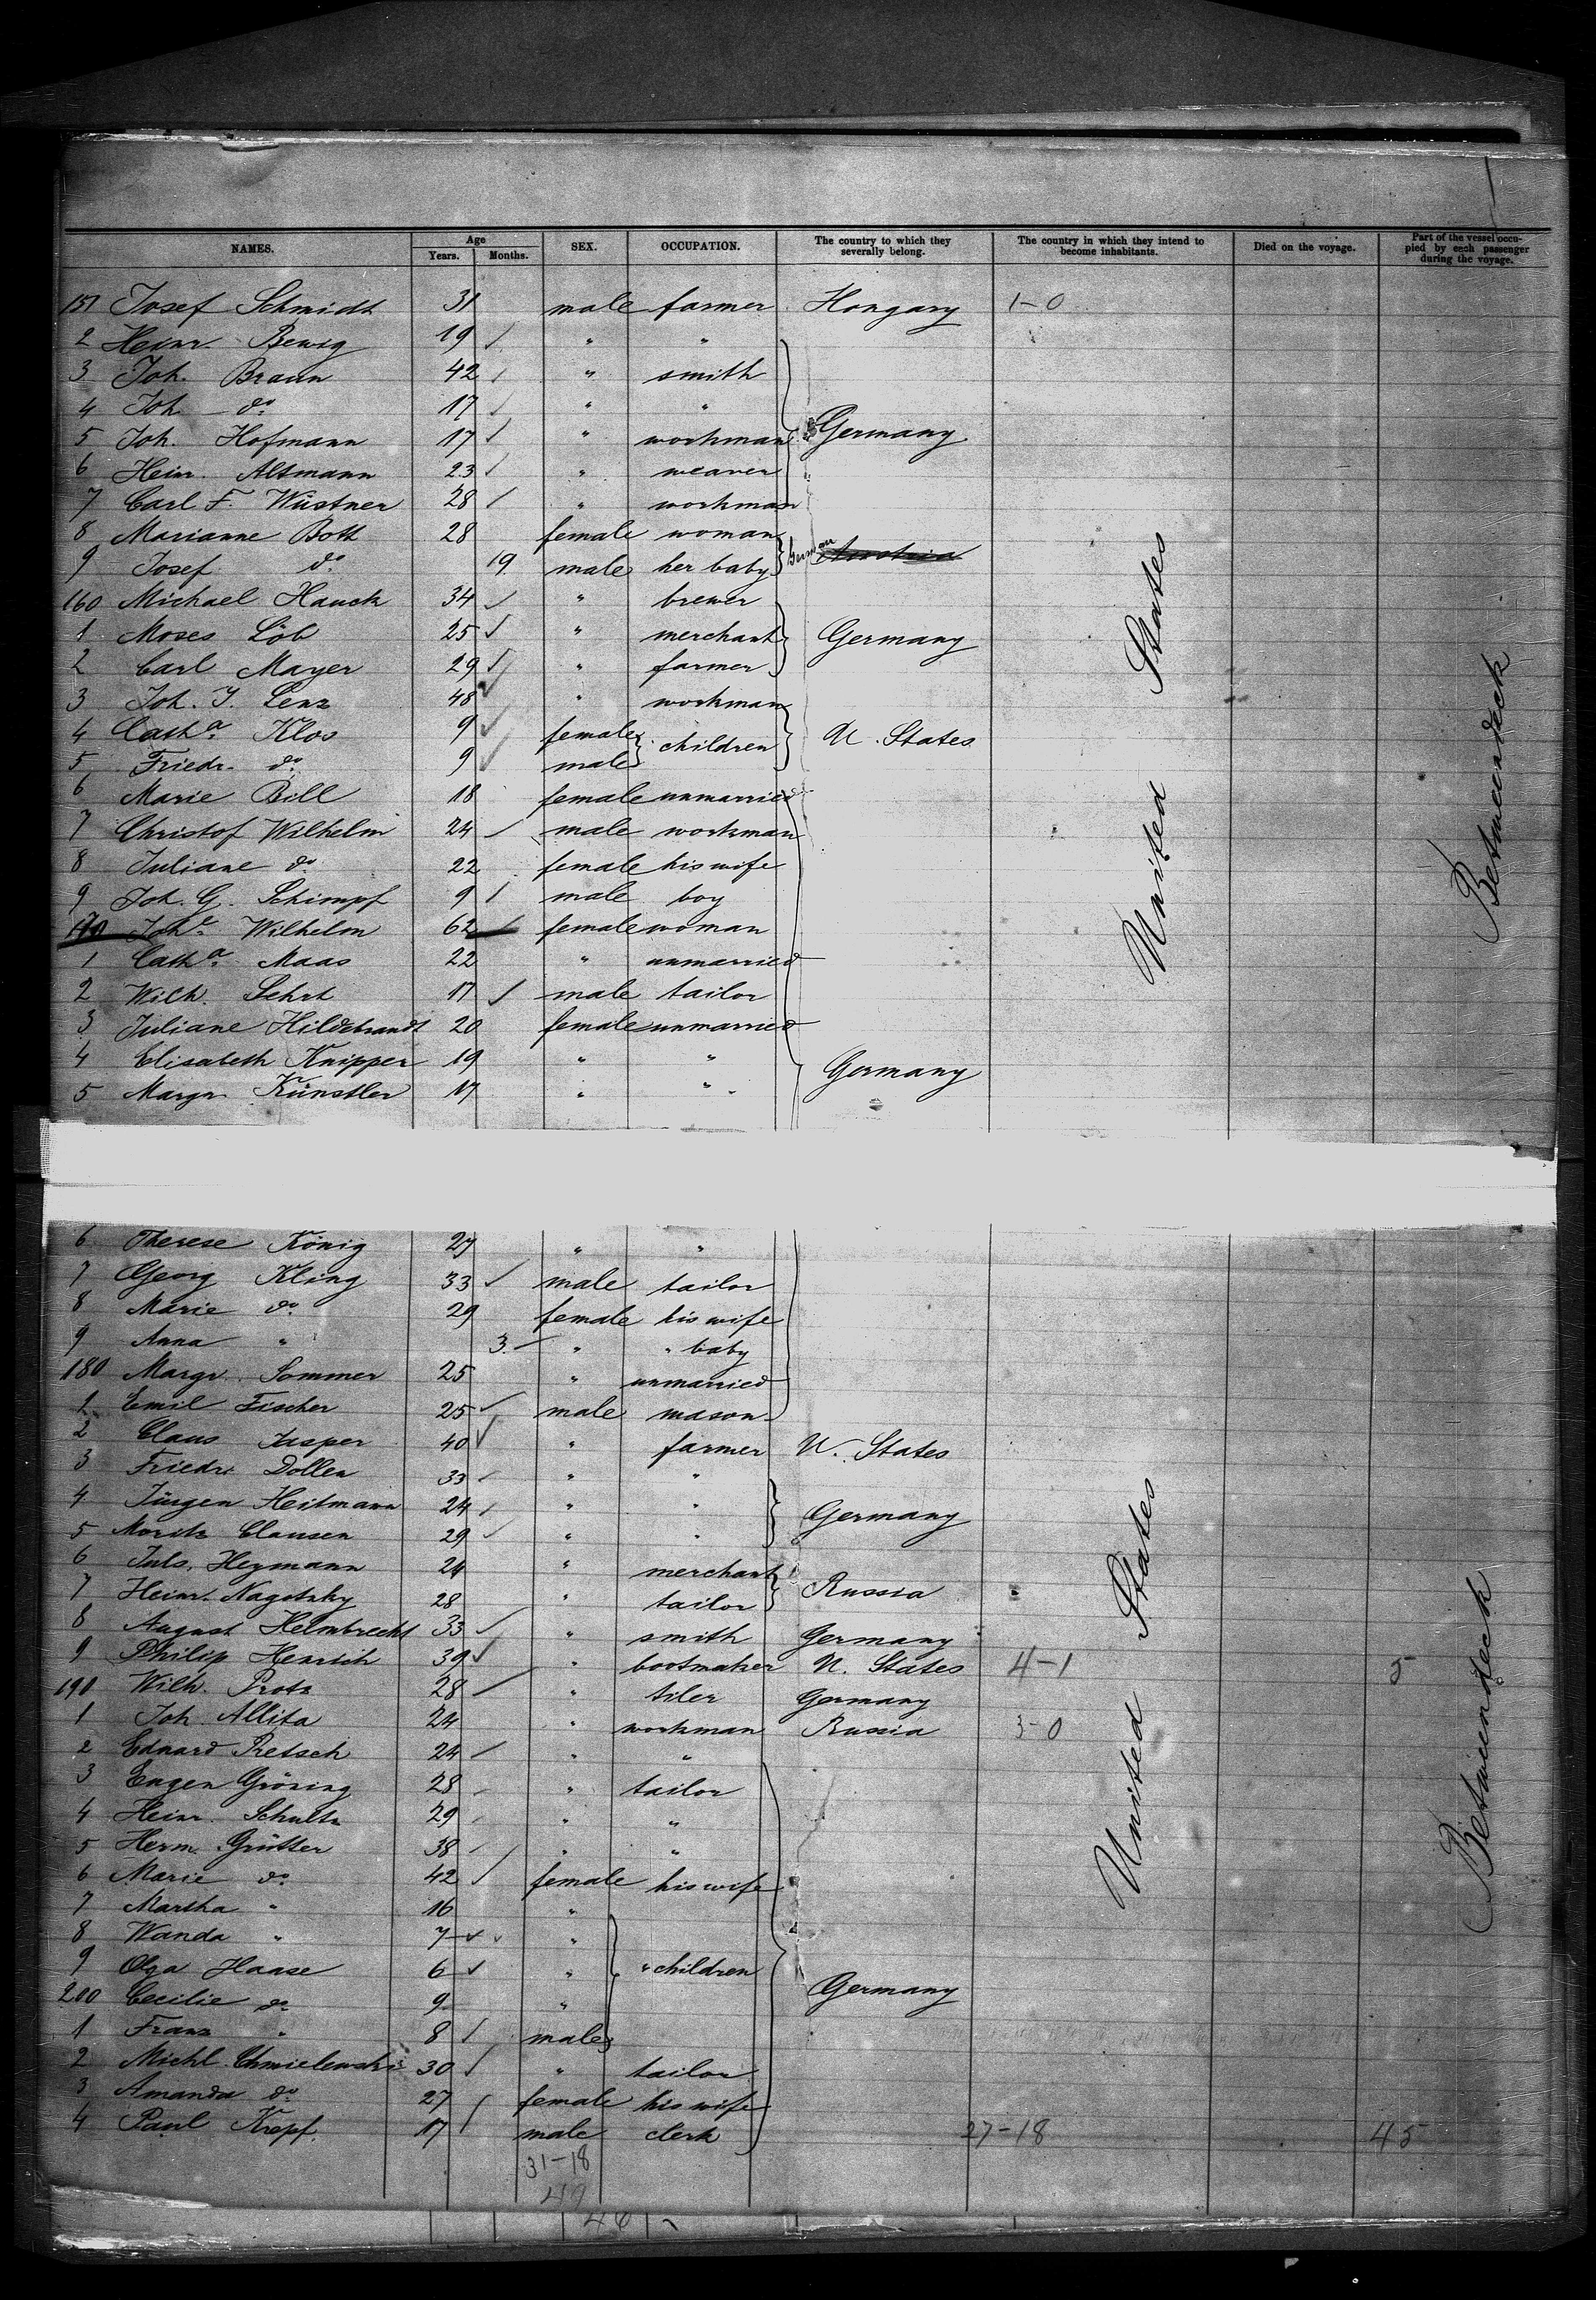 NAMES. Age Years. Months. SEX. OCCUPATION. The country to which they severally belong. The country in which they intend to become inhabitants. Died on the voyage. Part of the vessel occupied by each passenger during the voyage.
151 Josef Schmidt 31 male farmer Hongary 1-0
2 Heinr. Bewig 19 ✓ " "
3 Joh. Braun 42 " smith
4 Joh. do 17 ✓ " "
5 Joh. Hofmann 17 ✓ " workman Germany
6 Heinr. Altmann 23 ✓ " weaver
7 Carl F. Wüstner 28 ✓ " workman
8 Marianne Bott 28 female woman
9 Josef do 19 male her baby German Austria
160 Michael Hauck 34 ✓ " brewer
1 Moses Löb 25 ✓ " merchant Germany
2 Carl Mayer 29 ✓ " farmer
3 Joh. J. Lenz 48 ✓ " workman
4 Catha. Klos 9 ✓ female children U. States
5 Friedr. do 9 ✓ male
6 Marie Bill 18 female unmarried
7 Christof Wilhelm 24 ✓ male workman
8 Juliane do 22 female his wife
9 Joh. G. Schimpf 9 ✓ male boy
170 Joha. Wilhelm 62 female woman
1 Catha. Maas 22 " unmarried
2 Wilh. Sehrt 17 ✓ male tailor
3 Juliane Hildebrandt 20 female unmarried
4 Elisabeth Knipper 19 " " Germany
5 Margr. Künstler 17 " "
United States
Betweendeck
6 Therese König 27 " "
7 Georg Kling 33 ✓ male tailor
8 Marie do 29 female his wife
9 Anna " 3 " " baby
180 Margr. Sommer 25 " unmarried
1 Emil Fischer 25 ✓ male mason
2 Claus Jasper 40 ✓ " farmer U. States
3 Friedr. Dollen 33 ✓ " "
4 Jürgen Heitmann 24 ✓ " " Germany
5 Moritz Clausen 29 ✓ " "
6 Juls. Heymann 24 " merchant
7 Heinr. Nagotzky 28 " tailor Russia
8 August Helmbrecht 33 ✓ " smith Germany
9 Philip Henrich 39 ✓ " bootmaker U. States 4-1 5
190 Wilh. Protz 28 ✓ " tiler Germany
1 Joh. Allita 24 " workman Russia 3-0
2 Eduard Pretsch 24 ✓ " "
3 Eugen Gröning 28 " tailor
4 Heinr. Schultz 29 " "
5 Herm. Grütter 38 ✓ " "
6 Marie do 42 ✓ female his wife
7 Martha " 16 "
8 Wanda " 7 ✓ "
9 Olga Haase 6 ✓ " " children
200 Cecilie do 9 " Germany
1 Franz " 8 ✓ male
2 Michl. Chmielewski 30 ✓ " tailor
3 Amanda do 27 ✓ female his wife
4 Paul Krepf. 17 ✓ male clerk 27-18 45
United States
Betweendeck
31-18
49